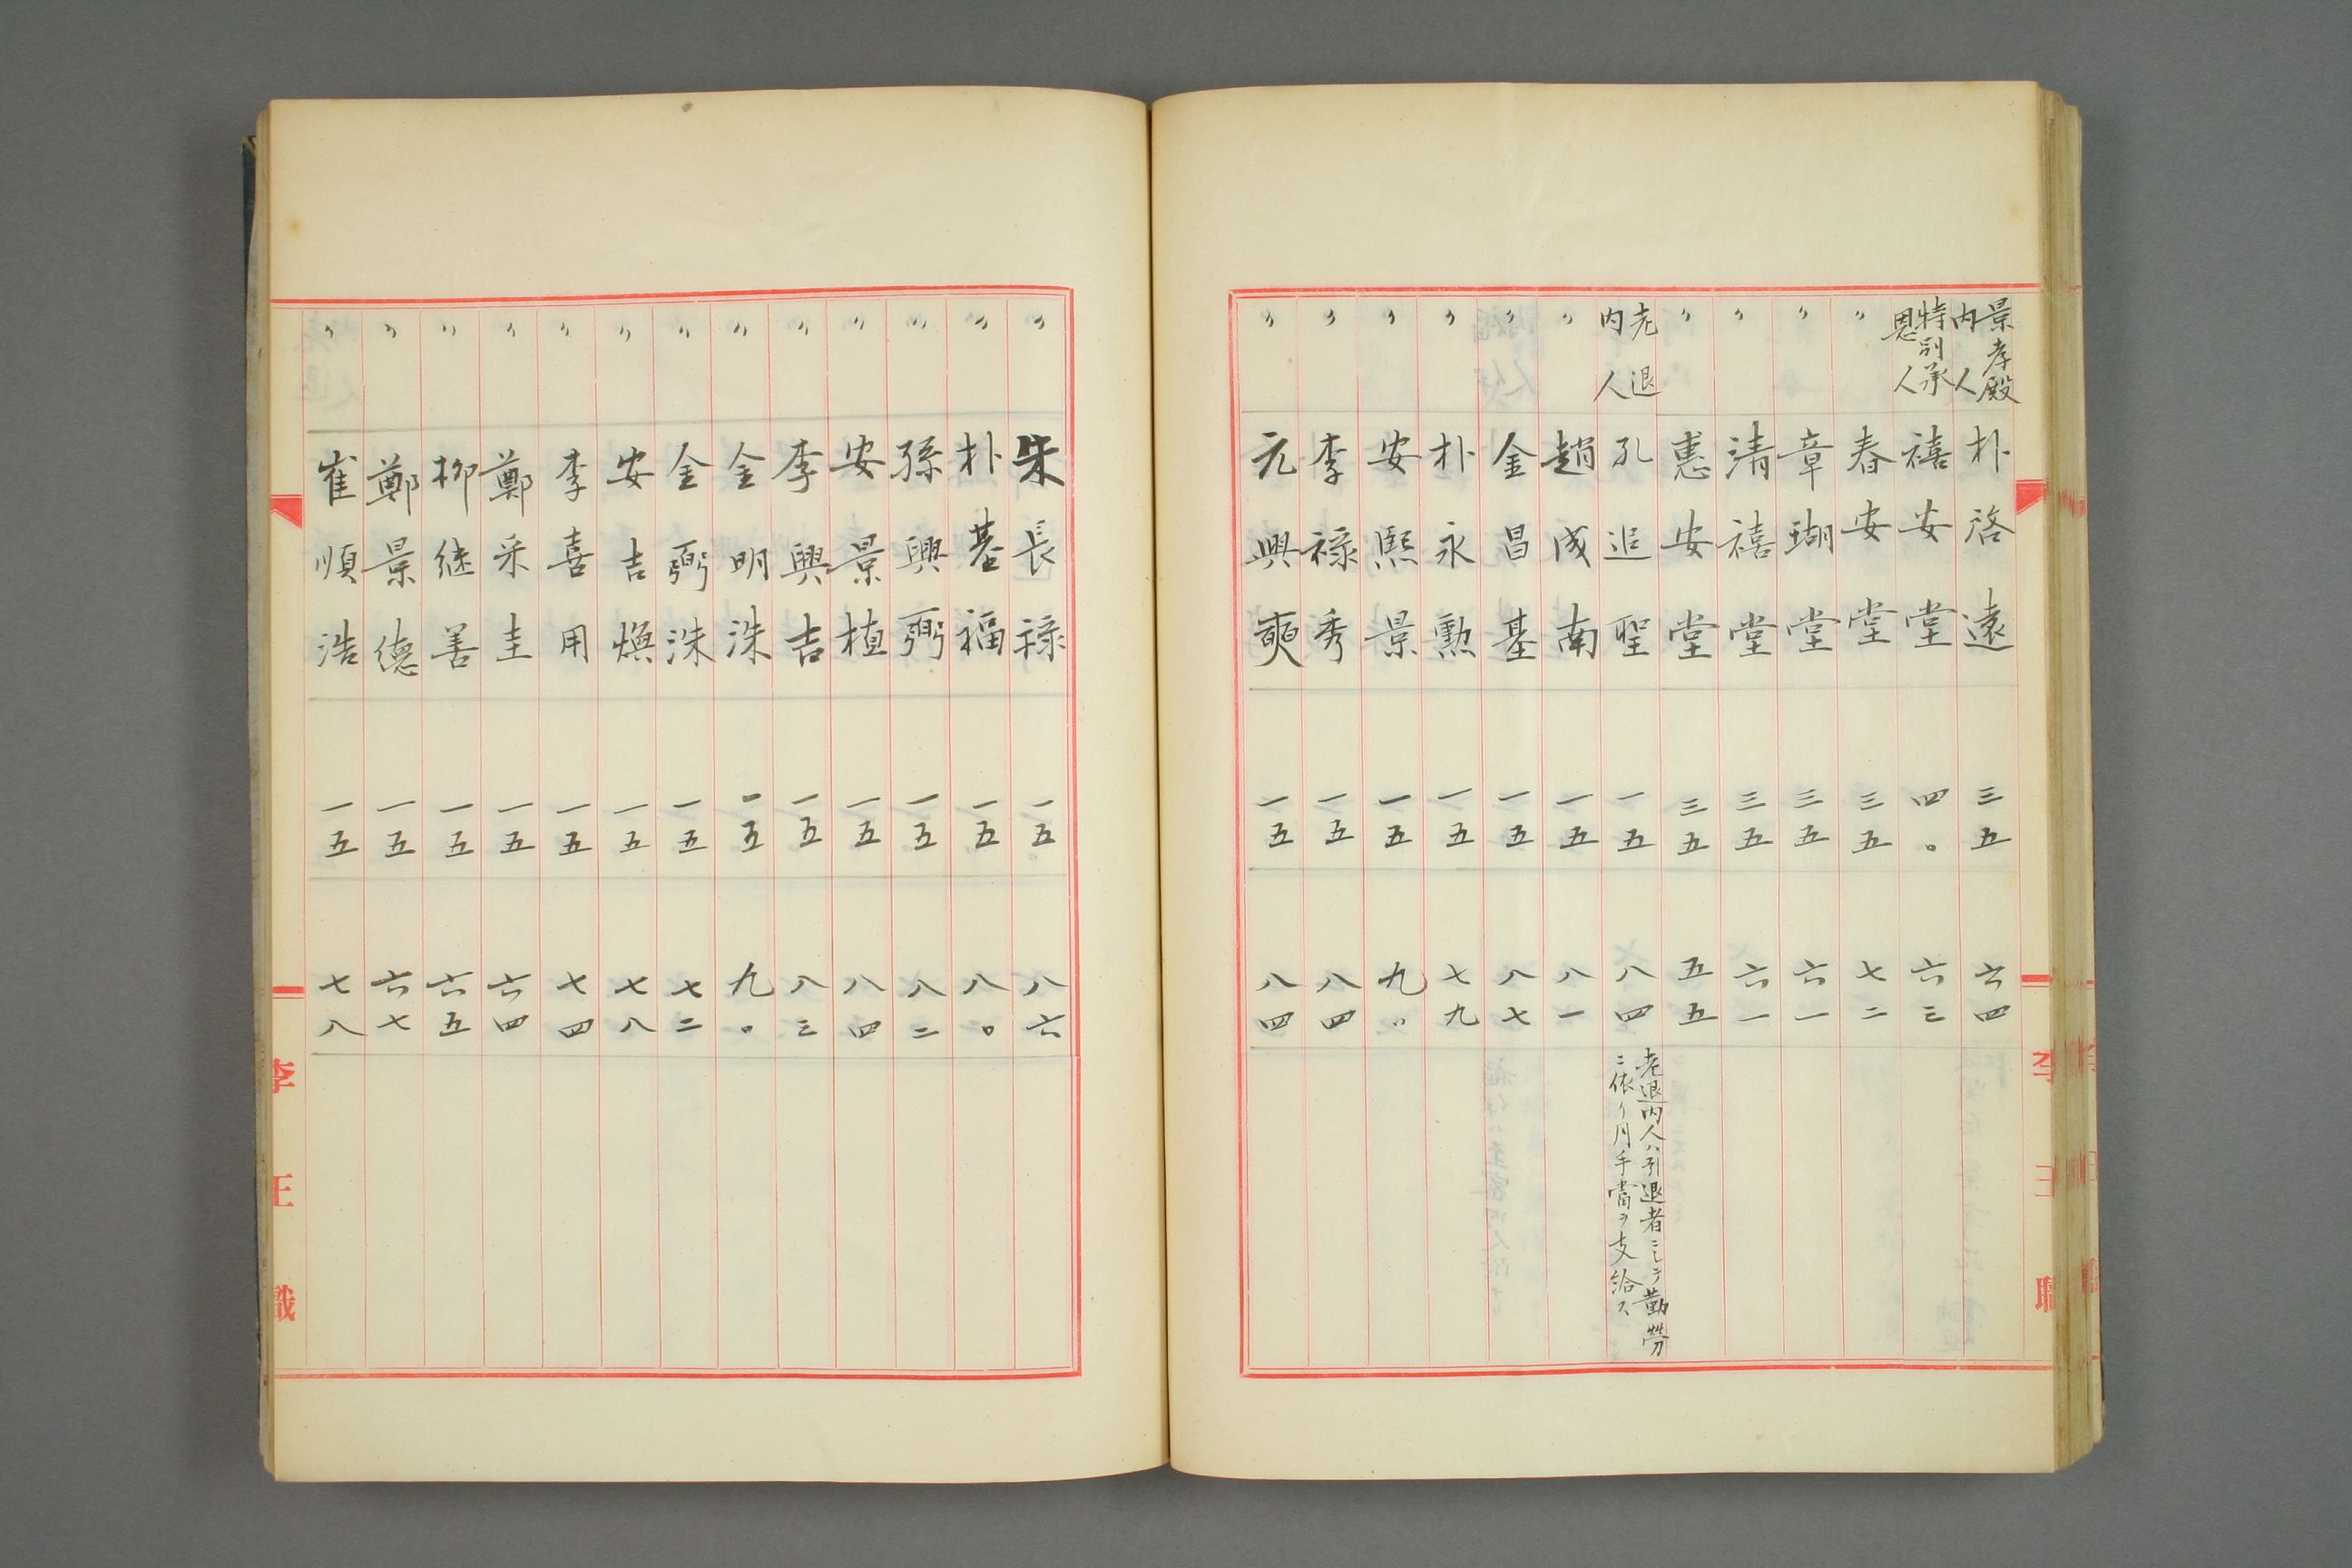 景孝殿内人 朴啓遠 三五 六四
特別承恩人 禧安堂 四〇 六三
〃 春安堂 三五 七二
〃 章瑚堂 三五 六一
〃 清禧堂 三五 六一
〃 憲安堂 三五 五五
老退内人 孔追聖 一五 八四 老退内人ハ引退者ニシテ勤勞ニ依リ月手當ヲ支給ス
〃 趙成南 一五 八一
〃 金昌基 一五 八七
〃 朴永勲 一五 七九
〃 安熙景 一五 九〇
〃 李祿秀 一五 八四
〃 元興奭 一五 八四
李王職
〃 朱長祿 一五 八六
〃 朴基福 一五 八〇
〃 孫興弼 一五 八二
〃 安景植 一五 八四
〃 李興吉 一五 八三
〃 金明洙 一五 九〇
〃 金弼洙 一五 七二
〃 安吉煥 一五 七八
〃 李喜用 一五 七四
〃 鄭采圭 一五 六四
〃 柳継善 一五 六五
〃 鄭景德 一五 六七
〃 崔順浩 一五 七八
李王職